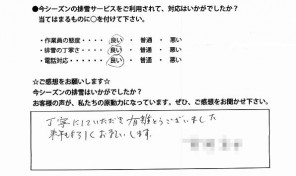 ●今シーズンの排雪サービスをご利用されて、対応はいかがでしたか?
当てはまるものに○を付けて下さい。
・作業員の態度・・・・ 良い ・ 普通 ・ 悪い
・排雪の丁寧さ・・・・ 良い ・ 普通 ・ 悪い
・電話対応・・・・・・ 良い ・ 普通 ・ 悪い
☆ご感想をお願いします☆
今シーズンの排雪はいかがでしたか?
お客様の声が、私たちの原動力になっています。ぜひ、ご感想をお聞かせ下さい。
丁寧にしていただき有難とうございました
来年もよろしくお願いします。